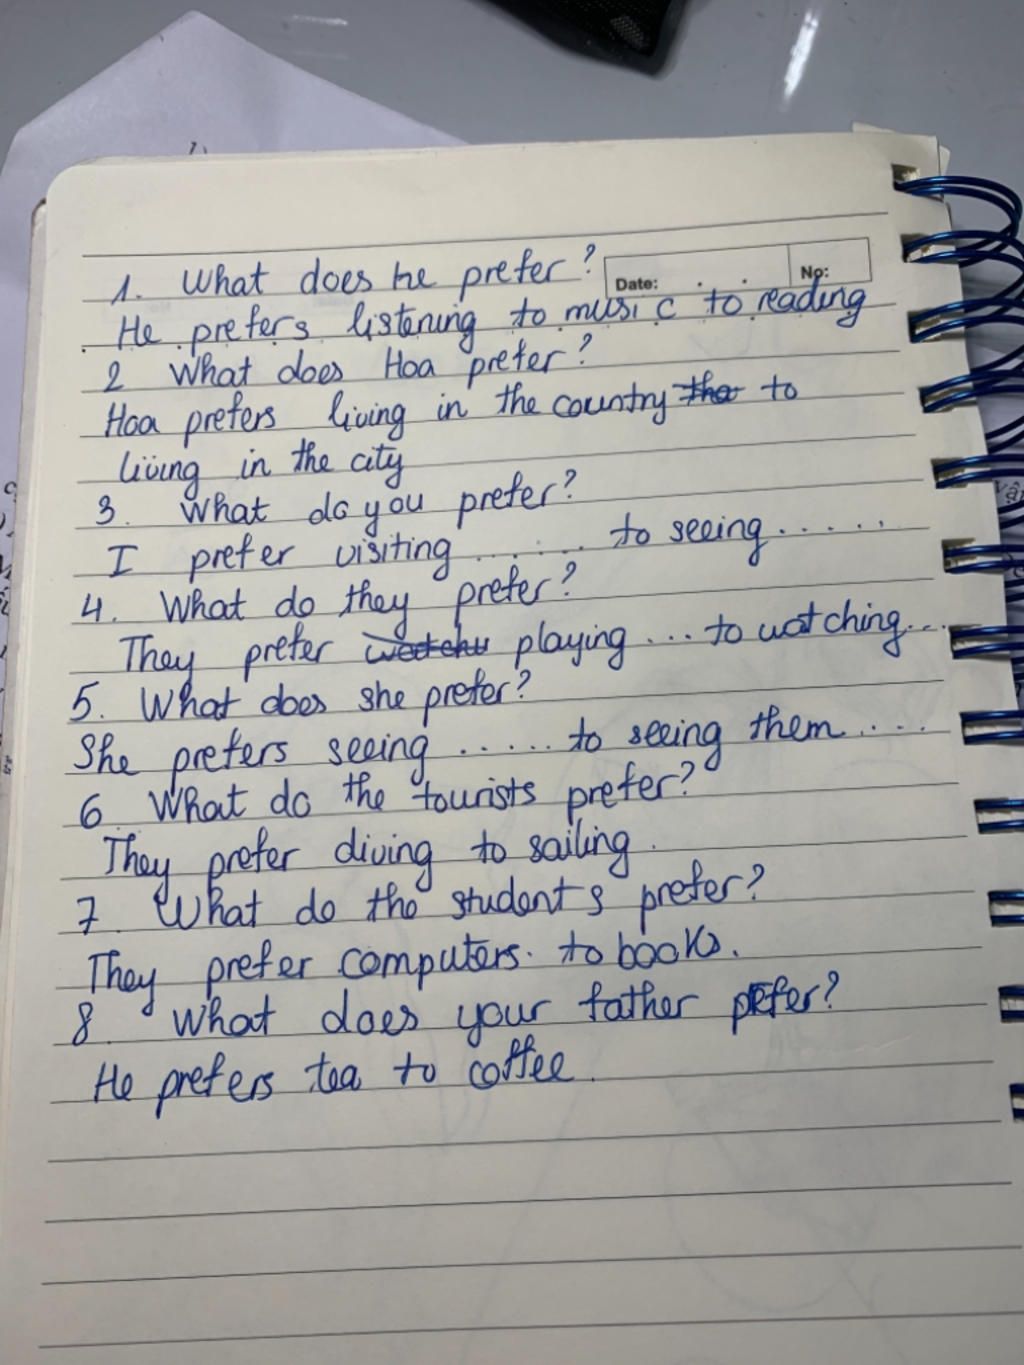 1. What does he prefer?
Date: . . No:
He prefers listening to music to reading
2 What does Hoa prefer?
Hoa prefers living in the country tha to
living in the city
3. What do you prefer?
I prefer visiting ...... to seeing......
4. What do they prefer?
They prefer watchu playing ... to watching...
5. What does she prefer?
She prefers seeing ..... to seeing them....
6 What do the tourists prefer?
They prefer diving to sailing.
7. What do the students prefer?
They prefer computers. to books.
8 What does your father prefer?
He prefers tea to coffee.